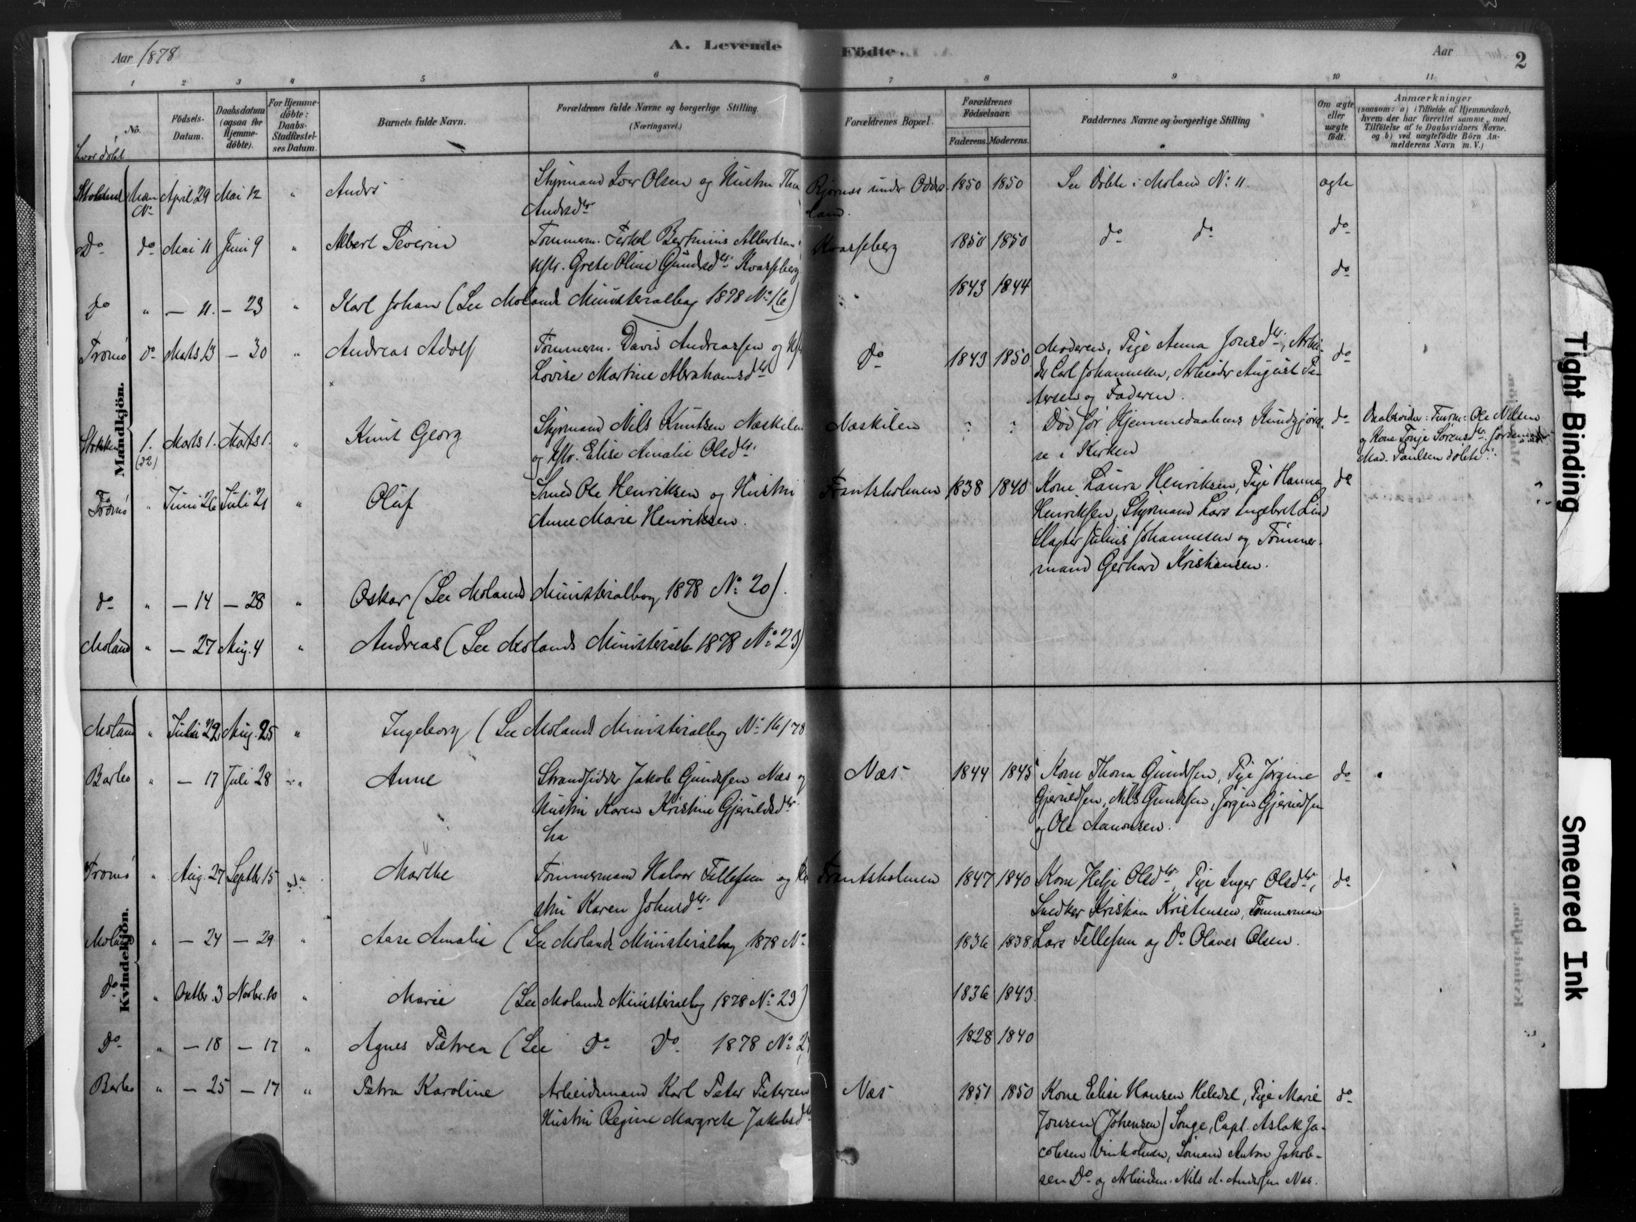 Aar 1878
A. Levende Födte.
Aar
2
1 2 3 4 5 6 7 8 9 10 11
No.
hvor døbt
Födsels-Datum.
Daabsdatum (ogsaa for Hjemme-döbte).
For Hjemme-döbte: Daabs-Stadfæstel-ses Datum.
Barnets fulde Navn.
Forældrenes fulde Navne og borgerlige Stilling (Næringsvei.)
Forældrenes Bopæl.
Forældrenes Födselsaar.
Faderens. Moderens.
Faddernes Navne og borgerlige Stilling
Om ægte eller uægte födt.
Anmærkninger
(saasom: a) i Tilfælde af Hjemmedaab, hvem der har forrettet samme, med Tilföielse af to Daabsvidners Navne, og b) ved uægtefödte Börn An-melderens Navn m. V.)
April 29 Mai 12 " Andrs
Styrmand Iver Olsen og Hustru
Andrsdtr
1850 1850 See Døbte i Moland No 11. ægte
Do do Mai 11 Juni 9 " Albert Severin
Kvasberg 1850 1850 do do do
do " — 11. — 23 " Karl Johan (See Molands Ministerialbog 1878 No 16)
1843 1844 do
Tromø do Marts 13 — 30 " Andreas Adolf
Tømmerm. David Andreassen og
Lovise Martine Abrahamsdtr
do 1843 1850
Moderen, Pige Anna Jonsdtr, Arbei-
der Carl Johannesen, Arbeider August Pe-
tersen og Faderen.
do
1. (22) Marts 1. Marts 1. " Knut Georg
Styrmand Nils Knutsen Næskilen
og Hstr. Elise Amalie Olsdtr
Næskilen
Død før Hjemmedaabens Kundgjørel-
se i Kirken
do
Mad. Paulsen døbte
Tromø " Juni 26 Juli 21 " Oluf
Smed Ole Henriksen og Hustru
Anne Marie Henriksen.
Frantsholmen 1838 1840
Kone Laura Henriksen, Pige Hanna
Henriksen, Styrmand Lars Ingebret Lind
Slagter Julius Johannesen og Tømmer-
mand Gerhard Kristiansen.
do
do " — 14 — 28 " Oskar (See Molands Ministerialbog 1878 No 20).
Moland " — 27 Aug. 4 " Andreas (See Molands Ministerialb 1878 No 23)
Mandkjön.
Moland " Juli 22 Aug. 25 " Ingeborg (See Molands Ministerialbog No 16/78
Barbo " — 17 Juli 28 " Anne
Strandsidder Jakob Gundersen Næs og
Hustru Karen Kristine Gjeruldsdtr
Næs 1844 1845
Kone Thona Gundersen, Pige Jørgine
Gjeruldsen, Nils Gundersen, Jørgen Gjeruldsen
og Ole Aanonsen.
do
Tromø " Aug. 27 Septbr 15 " Marthe
Tømmermand Halvor Tellefsen og Hu-
stru Karen Johnsdtr
Frantsholmen 1847 1840
Kone Helje Olsdtr, Pige Inger Olsdtr,
Snedker Kristian Kristensen, Tømmermand
Lars Tellefsen og Do Olaves Olsen.
do
Moland " — 24 — 29 " Aase Amalie (See Molands Ministerialbog 1878 No
1836 1838
do " Octbr. 3 Novbr. 10 " Marie (See Molands Ministerialbog 1878 No 23)
1836 1843
Do " — 18 — 17 " Agnes Petrea (See do do 1878 No
1828 1840
Barbo " — 25 — 17 " Petra Karoline
Arbeidsmand Karl Peter Petersen
Hustru Regine Margrete Jakobsdtr
Næs 1851 1850
Kone Elise Hansen Heledal, Pige Marie
Jonsen (Johensen) Songe, Capt. Aslak Ja-
cobsen Vinholmen, Sømand Anton Jakob-
sen Do og Arbeidsm. Nils A. Andersen Næs.
do
Kvindekjön.
Tight Binding
Smeared Ink